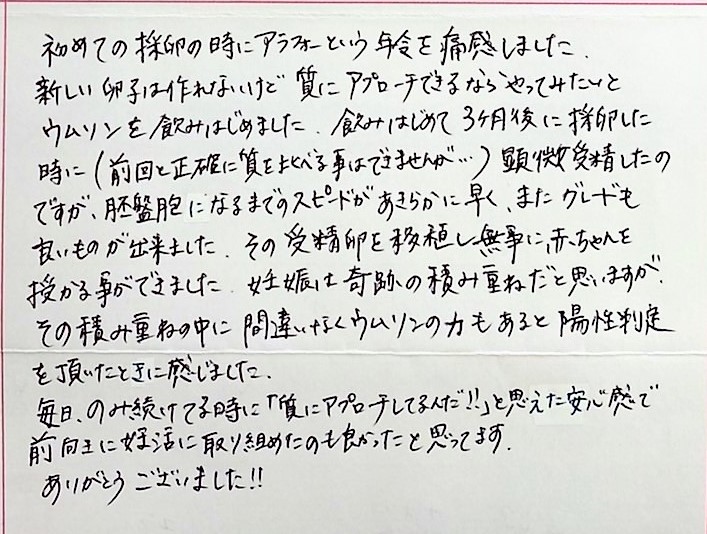 初めての採卵の時にアラフォーという年令を痛感しました.
新しい卵子は作れないけど質にアプローチできるならやってみたいと
ウムソンを飲みはじめました. 飲みはじめて3ヶ月後に採卵した
時に(前回と正確に質を比べる事はできませんが…)顕微受精したの
ですが、胚盤胞になるまでのスピードがあきらかに早く、またグレードも
良いものが出来ました. その受精卵を移植し無事に赤ちゃんを
授かる事ができました. 妊娠は奇跡の積み重ねだと思いますが、
その積み重ねの中に間違いなくウムソンの力もあると陽性判定
を頂いたときに感じました.
毎日、のみ続けてる時に「質にアプローチしてるんだ!!」と思えた安心感で
前向きに妊活に取り組めたのも良かったと思ってます.
ありがとうございました!!